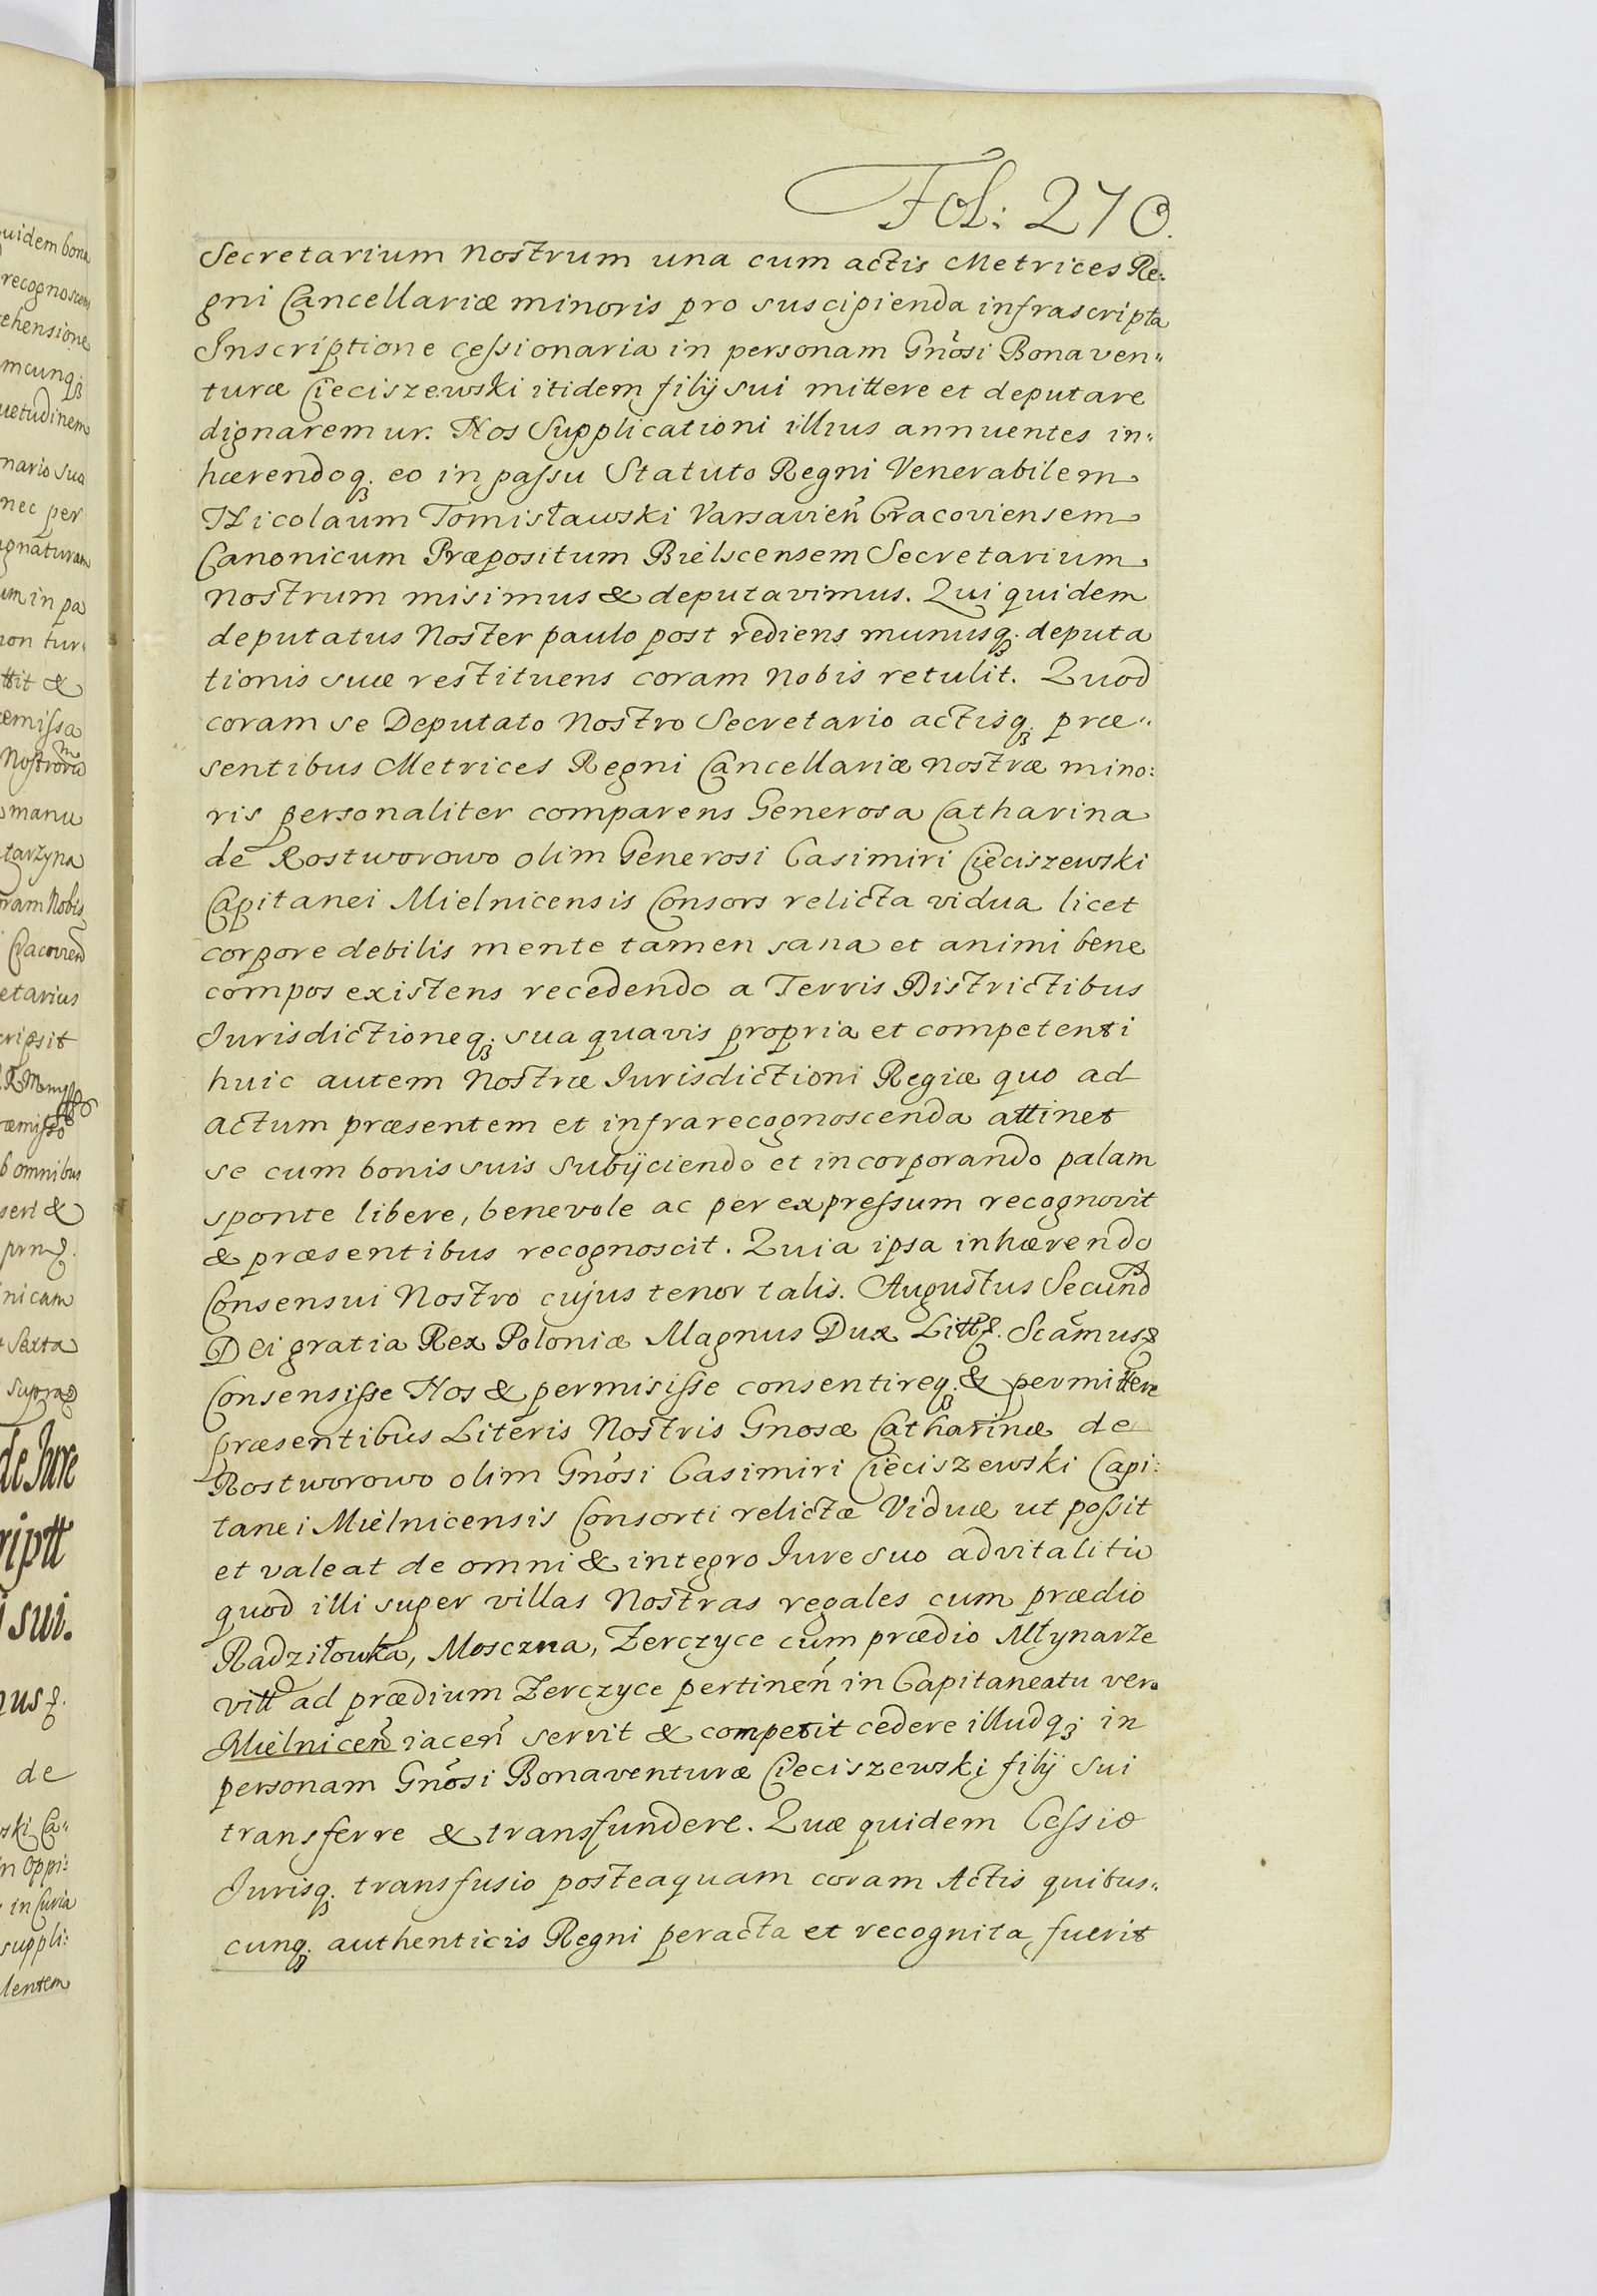 Fol: 270.
Secretarium Nostrum una cum actis Metrices Re:
gni Cancellariæ minoris pro suscipienda infrascripta
Inscriptione cessionaria in personam Gnosi Bonaven„
turæ Cieciszewski itidem filij sui mittere et deputare
dignaremur. Nos Supplicationi illius annuentes in„
hærendoq; eo in passu Statuto Regni Venerabilem
Nicolaum Tomisławski Varsavien̄ Cracoviensem
Canonicum Præpositum Bielscensem Secretarium
nostrum misimus & deputavimus. Qui quidem
deputatus Noster paulo post rediens munusq; deputa
tionis suæ restituens coram Nobis retulit. Quod
coram se Deputato Nostro Secretario actisq; præ„
sentibus Metrices Regni Cancellariæ nostræ mino:
ris personaliter comparens Generosa Catharina
de Rostworowo olim Generosi Casimiri Cieciszewski
Capitanei Mielnicensis Consors relicta vidua licet
corpore debilis mente tamen sana et animi bene
compos existens recedendo a Terris Districtibus
Jurisdictioneq; sua quavis propria et competenti
huic autem Nostræ Jurisdictioni Regiæ quo ad
actum præsentem et infrarecognoscenda attinet
se cum bonis suis subijciendo et incorporando palam
sponte libere, benevole ac per expressum recognovit
& præsentibus recognoscit. Quia ipsa inhærendo
Consensui Nostro cujus tenor talis. Augustus Secund9
Dei gratia Rex Poloniæ Magnus Dux Litt. Scamus
Consensisse Nos & permisisse consentireq; & permittere
præsentibus Literis Nostris Gnosæ Catharinæ de
Rostworowo olim Gnosi Casimiri Cieciszewski Capi:
tanei Mielnicensis Consorti relictæ Viduæ ut possit
et valeat de omni & integro Jure suo advitalitio
quod illi super villas Nostras regales cum prædio
Radziłowka, Mosczna, Zerczyce cum prædio Młynarze
vitt ad prædium Zerczyce pertinen̄ in Capitaneatu vero
Mielnicen̄ iacen̄ servit & competit cedere illudq; in
personam Gnosi Bonaventuræ Cieciszewski filij sui
transferre & transfundere. Quæ quidem Cessio
Jurisq; transfusio posteaquam coram Actis quibus„
cunq; authenticis Regni peracta et recognita fuerit